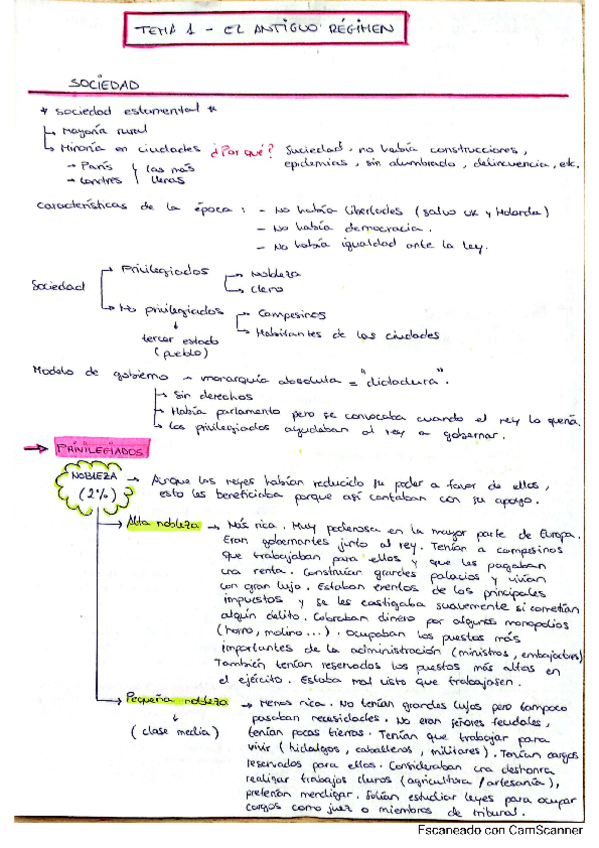 TEMA 1 - EL ANTIGUO RÉGIMEN
SOCIEDAD
* Sociedad estamental *
↳ Mayoría rural
↳ Minoría en ciudades ¿Por qué? Suciedad, no había construcciones,
→ París } las más epidemias, sin alumbrado, delincuencia, etc.
→ Londres } llenas
Características de la época: - No había libertades (salvo UK y Holanda)
- No había democracia.
- No había igualdad ante la ley.
Sociedad → Privilegiados → Nobleza
→ Clero
→ No privilegiados → Campesinos
↓ → Habitantes de las ciudades
tercer estado
(pueblo)
Modelo de gobierno - monarquía absoluta = "dictadura".
→ Sin derechos
→ Había parlamento pero se convocaba cuando el rey lo quería.
→ Los privilegiados ayudaban al rey a gobernar.
→ PRIVILEGIADOS
NOBLEZA → Aunque los reyes habían reducido su poder a favor de ellos,
(2%) esto les beneficiaba porque así contaban con su apoyo.
→ Alta nobleza → Más rica. Muy poderosa en la mayor parte de Europa.
Eran gobernantes junto al rey. Tenían a campesinos
que trabajaban para ellos y que les pagaban
una renta. Construían grandes palacios y vivían
con gran lujo. Estaban exentos de los principales
impuestos y se les castigaba suavemente si cometían
algún delito. Cobraban dinero por algunos monopolios
(horno, molino...). Ocupaban los puestos más
importantes de la administración (ministros, embajadores)
También tenían reservados los puestos más altos en
el ejército. Estaba mal visto que trabajasen.
→ Pequeña nobleza → Menos rica. No tenían grandes lujos pero tampoco
↓ pasaban necesidades. No eran señores feudales,
(clase media) tenían pocas tierras. Tenían que trabajar para
vivir (hidalgos, caballeros, militares). Tenían cargos
reservados para ellos. Consideraban una deshonra
realizar trabajos duros (agricultura/artesanía),
preferían mendigar. Solían estudiar leyes para ocupar
cargos como juez o miembros de tribunal.
Escaneado con CamScanner